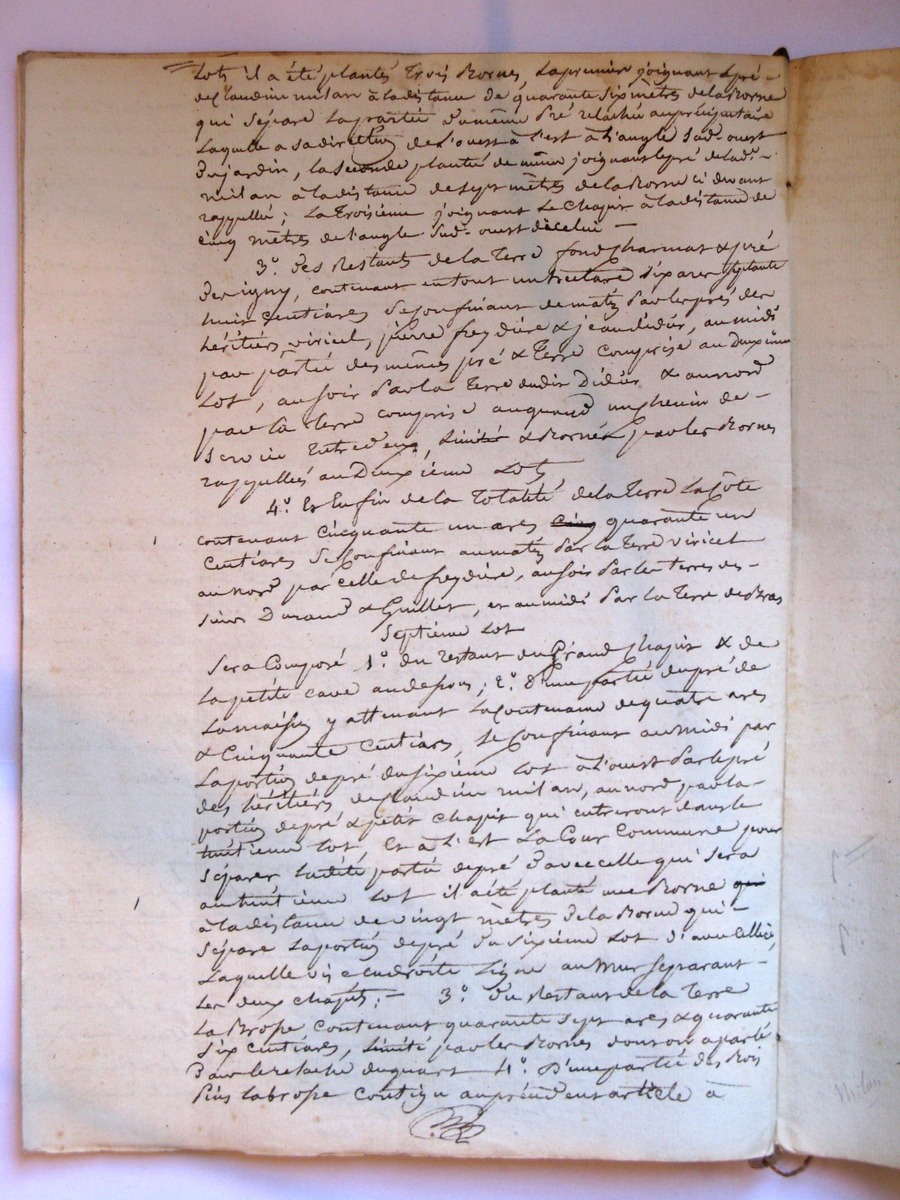 Lots il a été plantés trois Bornes, la premiere joignant le pré
de Claudine milan à la distance de quarante six mètres de la Borne
qui sépare la partie du même Pré relachée au préciputaire
Laquelle a sa direction de l'ouest à l'est à l'angle sud-ouest
Du jardin, la seconde plantée de même joignant le pré de lad.
milan à la distance de sept mètres de la Borne ci devant
rappellée ; La troisième joignant le Chapit à la distance de
cinq mètres de l'angle sud-ouest d'icelui —
3.° Des Restants de la Terre fond Charmat & pré
Pervigny, contenant en tout un hectare six ares septante
huit centiares se confinant de matin par les prés des
héritiers viricel, pierre freydière & jean didier, au midi
par partie des mêmes pré & Terre comprise au Deuxième
Lot, au soir par la Terre dudit Didier & au nord
par la terre comprise au quard un chemin de
service entredeux, Limité & Borné par les Bornes
rappellées au Deuxième Lot
4.° Et Enfin de la Totalité de la Terre La Côte
contenant cinquante un ares cinq quarante un
centiares se confinant au matin par la terre viricel
au nord par celle de freydière, au soir par les terres des
sieurs Durand & Guillet, et au midi par la Terre de Bras
Septième Lot
Sera Composé 1.° du restant du Grand Chapit & de
La petite cave au dessous ; 2.° D'une partie du pré de
La maison y attenant La Contenance de quatre ares
& Cinquante Centiares, se confinant au midi par
La portion de pré du sixième Lot à l'ouest par le pré
des héritiers de Claudine milan, au nord par la
portion de pré & petit chapit qui entreront dans le
huitième Lot, Et à l'est La Cour Commune pour
séparer ladite partie de pré D'avec celle qui sera
au huitième Lot il a été planté une Borne qui
à la distance de vingt mètres de la Borne qui
sépare La portion de pré du sixième Lot d'avec celle ci
Laquelle vise en droite Ligne au mur séparant
Les deux chapits ; — 3.° Du Restant de la Terre
La Brosse contenant quarante sept ares & quarante
six centiares, Limité par les Bornes dont on a parlé
Pour le relache du quart 4.° D'une partie des Bois
Pins La brosse contigu au précédent article à
Milan